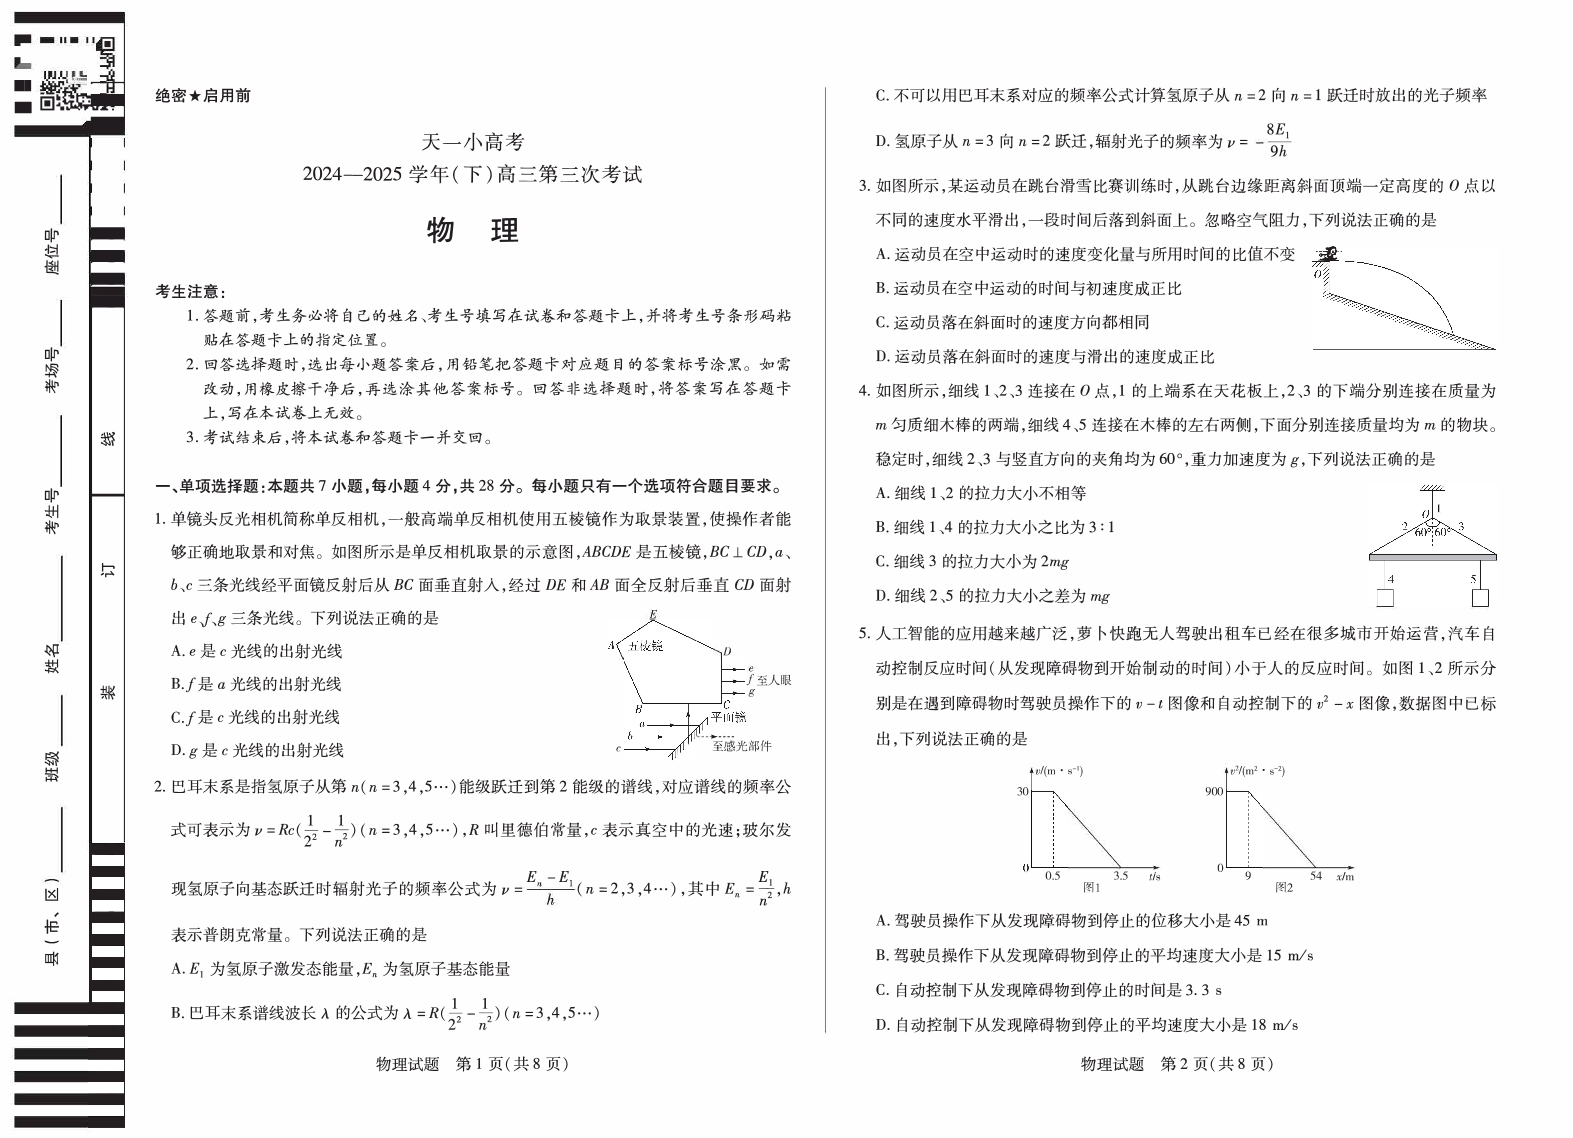 绝密★启用前
天一小高考
2024—2025 学年(下)高三第三次考试
物 理
考生注意:
1. 答题前,考生务必将自己的姓名、考生号填写在试卷和答题卡上,并将考生号条形码粘
贴在答题卡上的指定位置。
2. 回答选择题时,选出每小题答案后,用铅笔把答题卡对应题目的答案标号涂黑。如需
改动,用橡皮擦干净后,再选涂其他答案标号。回答非选择题时,将答案写在答题卡
上,写在本试卷上无效。
3. 考试结束后,将本试卷和答题卡一并交回。
一、单项选择题:本题共 7 小题,每小题 4 分,共 28 分。每小题只有一个选项符合题目要求。
1. 单镜头反光相机简称单反相机,一般高端单反相机使用五棱镜作为取景装置,使操作者能
够正确地取景和对焦。如图所示是单反相机取景的示意图,ABCDE 是五棱镜,BC⊥CD,a、
b、c 三条光线经平面镜反射后从 BC 面垂直射入,经过 DE 和 AB 面全反射后垂直 CD 面射
出 e、f、g 三条光线。下列说法正确的是
A. e 是 c 光线的出射光线
B. f 是 a 光线的出射光线
C. f 是 c 光线的出射光线
D. g 是 c 光线的出射光线
E
A 五棱镜
D
e
f 至人眼
g
B
C
平面镜
a
b
至感光部件
c
2. 巴耳末系是指氢原子从第 n(n=3,4,5…)能级跃迁到第 2 能级的谱线,对应谱线的频率公
式可表示为 ν=Rc(1/2² − 1/n²)(n=3,4,5…),R 叫里德伯常量,c 表示真空中的光速;玻尔发
现氢原子向基态跃迁时辐射光子的频率公式为 ν=(Eₙ−E₁)/h(n=2,3,4…),其中 Eₙ=E₁/n²,h
表示普朗克常量。下列说法正确的是
A. E₁ 为氢原子激发态能量,Eₙ 为氢原子基态能量
B. 巴耳末系谱线波长 λ 的公式为 λ=R(1/2² − 1/n²)(n=3,4,5…)
物理试题 第 1 页(共 8 页)
C. 不可以用巴耳末系对应的频率公式计算氢原子从 n=2 向 n=1 跃迁时放出的光子频率
D. 氢原子从 n=3 向 n=2 跃迁,辐射光子的频率为 ν=−8E₁/9h
3. 如图所示,某运动员在跳台滑雪比赛训练时,从跳台边缘距离斜面顶端一定高度的 O 点以
不同的速度水平滑出,一段时间后落到斜面上。忽略空气阻力,下列说法正确的是
A. 运动员在空中运动时的速度变化量与所用时间的比值不变
B. 运动员在空中运动的时间与初速度成正比
C. 运动员落在斜面时的速度方向都相同
D. 运动员落在斜面时的速度与滑出的速度成正比
O
4. 如图所示,细线 1、2、3 连接在 O 点,1 的上端系在天花板上,2、3 的下端分别连接在质量为
m 匀质细木棒的两端,细线 4、5 连接在木棒的左右两侧,下面分别连接质量均为 m 的物块。
稳定时,细线 2、3 与竖直方向的夹角均为 60°,重力加速度为 g,下列说法正确的是
A. 细线 1、2 的拉力大小不相等
B. 细线 1、4 的拉力大小之比为 3∶1
C. 细线 3 的拉力大小为 2mg
D. 细线 2、5 的拉力大小之差为 mg
O 1
2 60° 60° 3
4 5
5. 人工智能的应用越来越广泛,萝卜快跑无人驾驶出租车已经在很多城市开始运营,汽车自
动控制反应时间(从发现障碍物到开始制动的时间)小于人的反应时间。如图 1、2 所示分
别是在遇到障碍物时驾驶员操作下的 v−t 图像和自动控制下的 v²−x 图像,数据图中已标
出,下列说法正确的是
v/(m·s⁻¹)
30
0 0.5 3.5 t/s
图1
v²/(m²·s⁻²)
900
0 9 54 x/m
图2
A. 驾驶员操作下从发现障碍物到停止的位移大小是 45 m
B. 驾驶员操作下从发现障碍物到停止的平均速度大小是 15 m/s
C. 自动控制下从发现障碍物到停止的时间是 3.3 s
D. 自动控制下从发现障碍物到停止的平均速度大小是 18 m/s
物理试题 第 2 页(共 8 页)
座位号
考场号
考生号
姓名
班级
县(市、区)
线
订
装